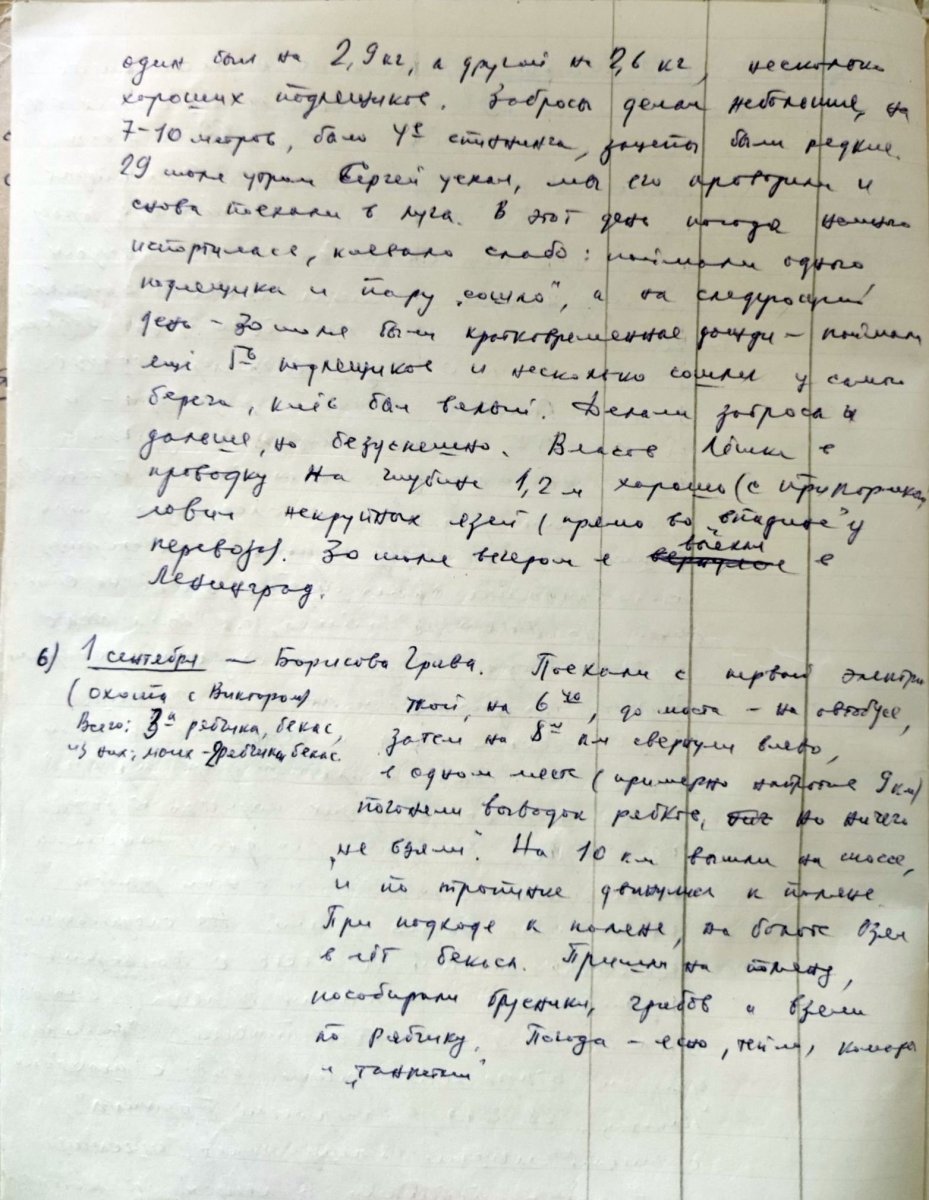 один был на 2,9 кг, а другой на 2,6 кг, несколько
хороших подлещиков. Забросы делал небольшие, на
7-10 метров, было 4е спиннинга, зацепы были редкие.
29 июля утром Сергей уехал, мы его проводили и
снова поехали в луга. В этот день погода немного
испортилась, клевало слабо: поймали одного
подлещика и пару "сошло", а на следующий
день - 30 июля были кратковременные дожди - поймали
ещё подлещиков и несколько сошли у самого
берега, клёв был вялый. Делали заброса и
дальше, но безуспешно. Власов Лёшка в
проводку на глубине 1,2 м хорошо (с
ловил некрупных язей (прямо во "впадине" у
перевоза). 30 июля вечером я вернулся выехал в
Ленинград.
6) 1 сентября - Борисова Грива. Поехали с первой электрич
(охота с Виктором) кой, на 6 чс, до моста - на автобусе,
Всего: 3а рябчика, бекас, затем на 8м км свернули влево,
из них: моих - 2 рябчика, бекас.
в одном месте (примерно напротив 9 км)
погоняли выводок рябков, но ничего
"не взяли". На 10 км вышли на шоссе,
и по тропинке двинулись к поляне.
При подходе к поляне, на болоте взял
в лёт бекаса. Пришли на поляну,
пособирали брусники, грибов и взяли
по рябчику. Погода - ясно, тепло, комары
и